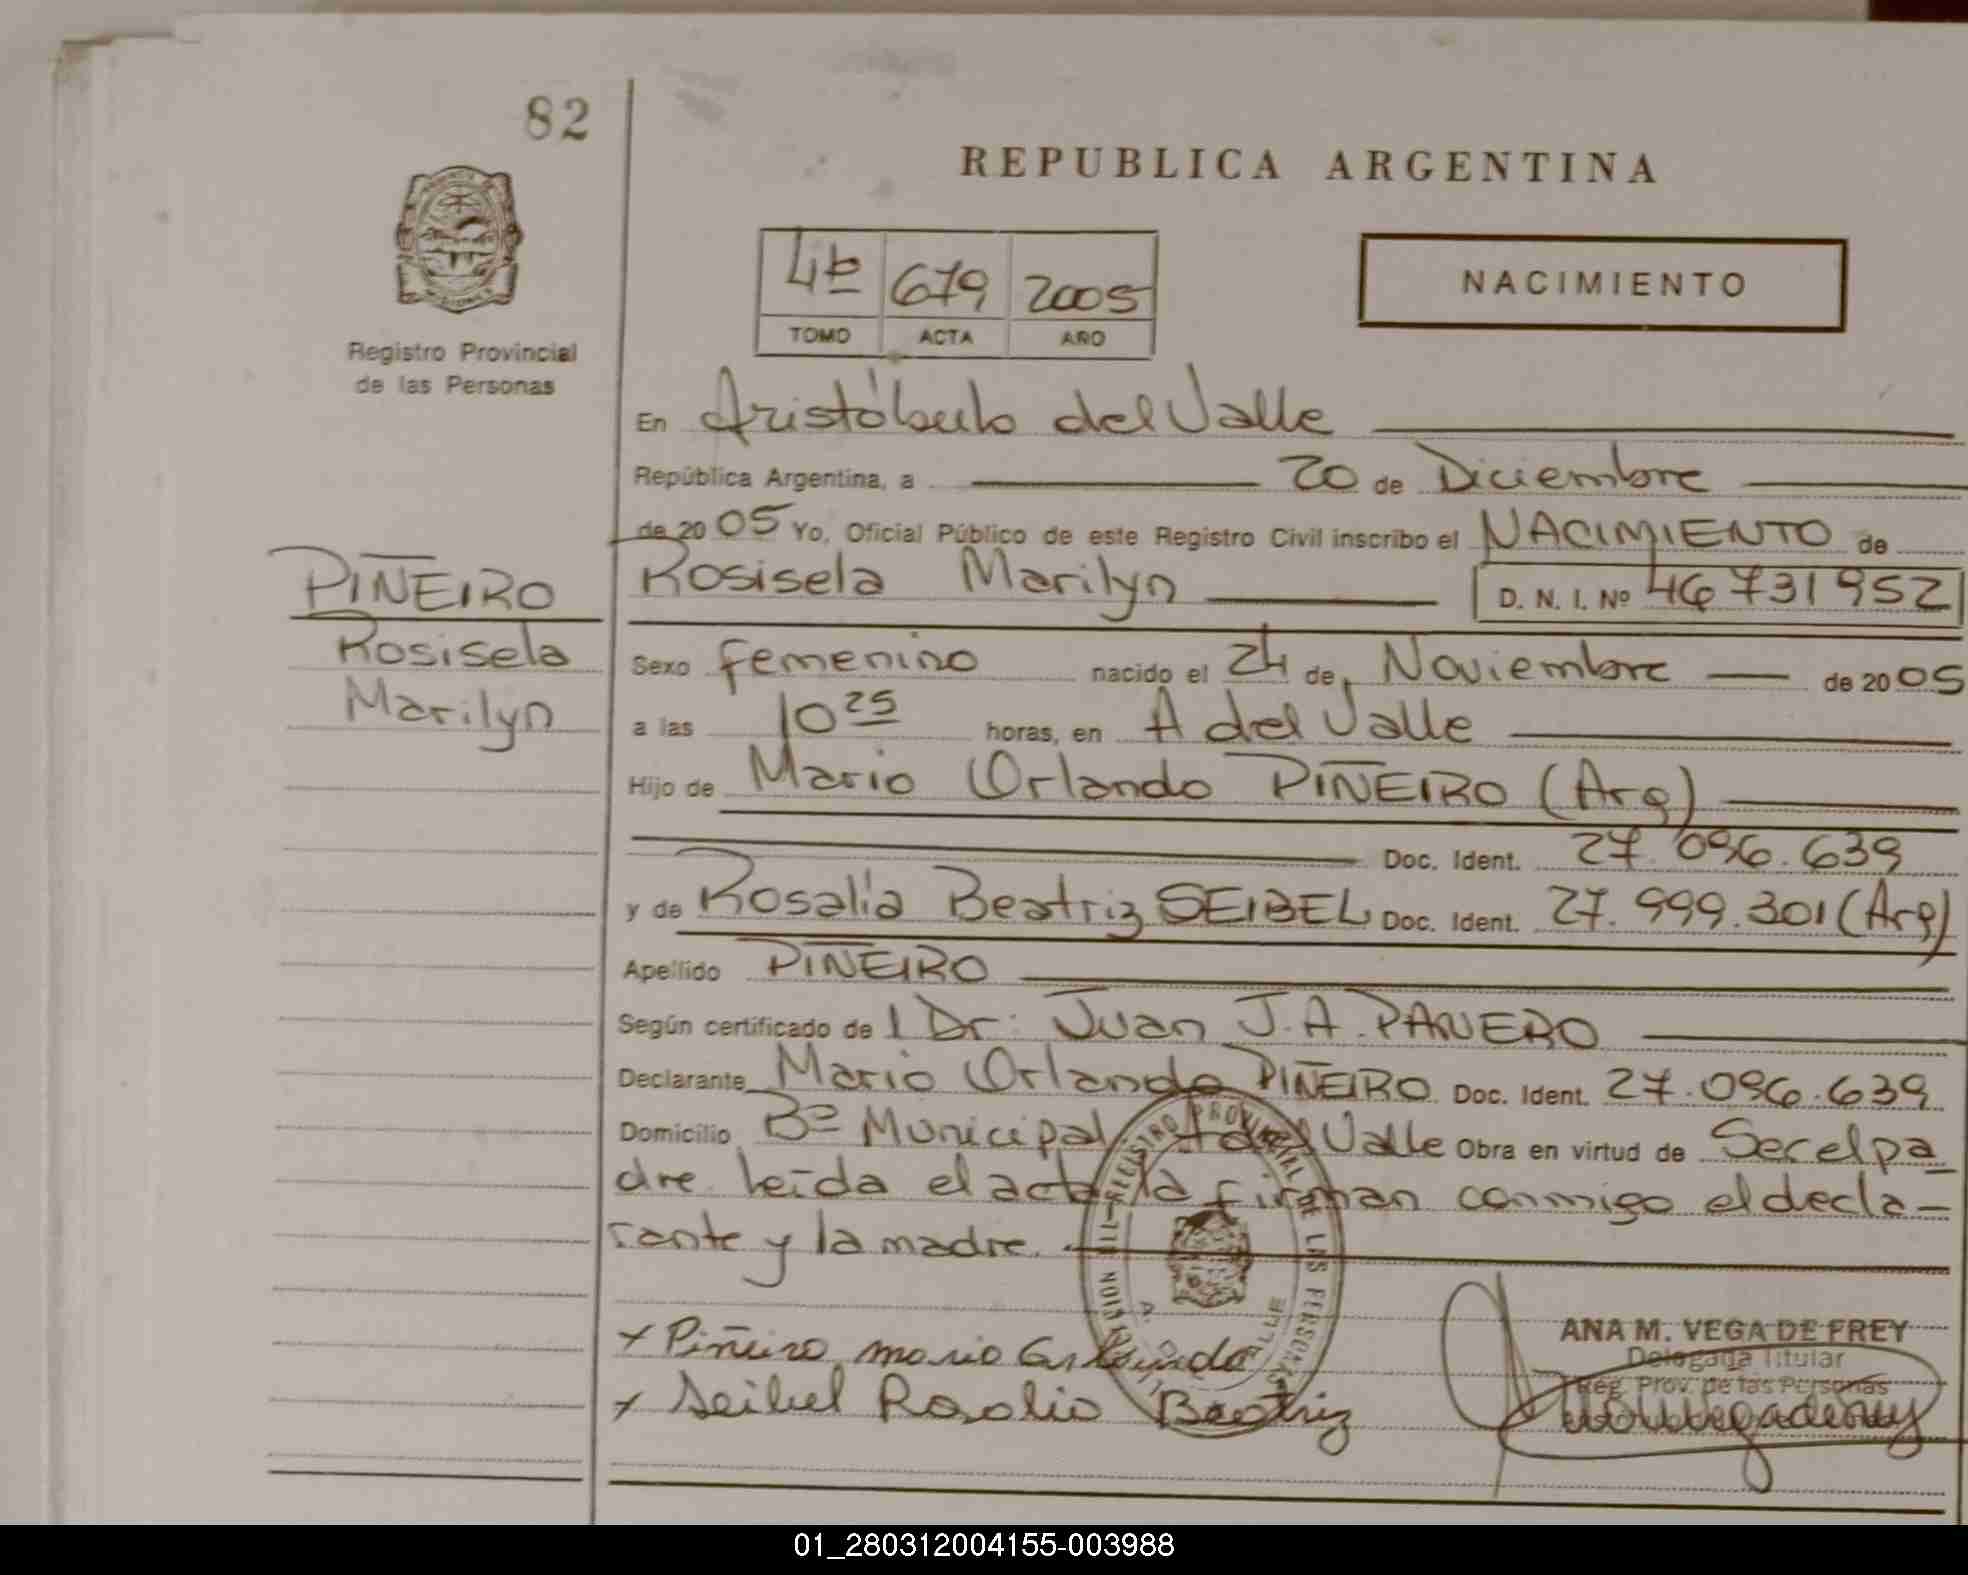 82
REPUBLICA ARGENTINA
4º 679 2005
TOMO ACTA AÑO
NACIMIENTO
Registro Provincial
de las Personas
En Aristóbulo del Valle
República Argentina, a 20 de Diciembre
de 2005 Yo, Oficial Público de este Registro Civil inscribo el NACIMIENTO de
PIÑEIRO
Rosisela
Marilyn
Rosisela Marilyn D. N. I. Nº 46731952
Sexo femenino nacido el 24 de Noviembre de 2005
a las 10 25 horas, en A del Valle
Hijo de Mario Orlando PIÑEIRO (Arg)
Doc. Ident. 27.096.639
y de Rosalía Beatriz SEIBEL Doc. Ident. 27.999.301 (Arg)
Apellido PIÑEIRO
Según certificado de l Dr. Juan J.A. PANERO
Declarante Mario Orlando PIÑEIRO Doc. Ident. 27.096.639
Domicilio Bº Municipal A del Valle Obra en virtud de Ser el pa
dre leída el acta la firman conmigo el decla-
rante y la madre.
x Piñeiro Mario Orlando
x Seibel Rosalia Beatriz
ANA M. VEGA DE FREY
Delegada Titular
Reg. Prov. de las Personas
REGISTRO PROVINCIAL DE LAS PERSONAS
A. VALLE
01_280312004155-003988